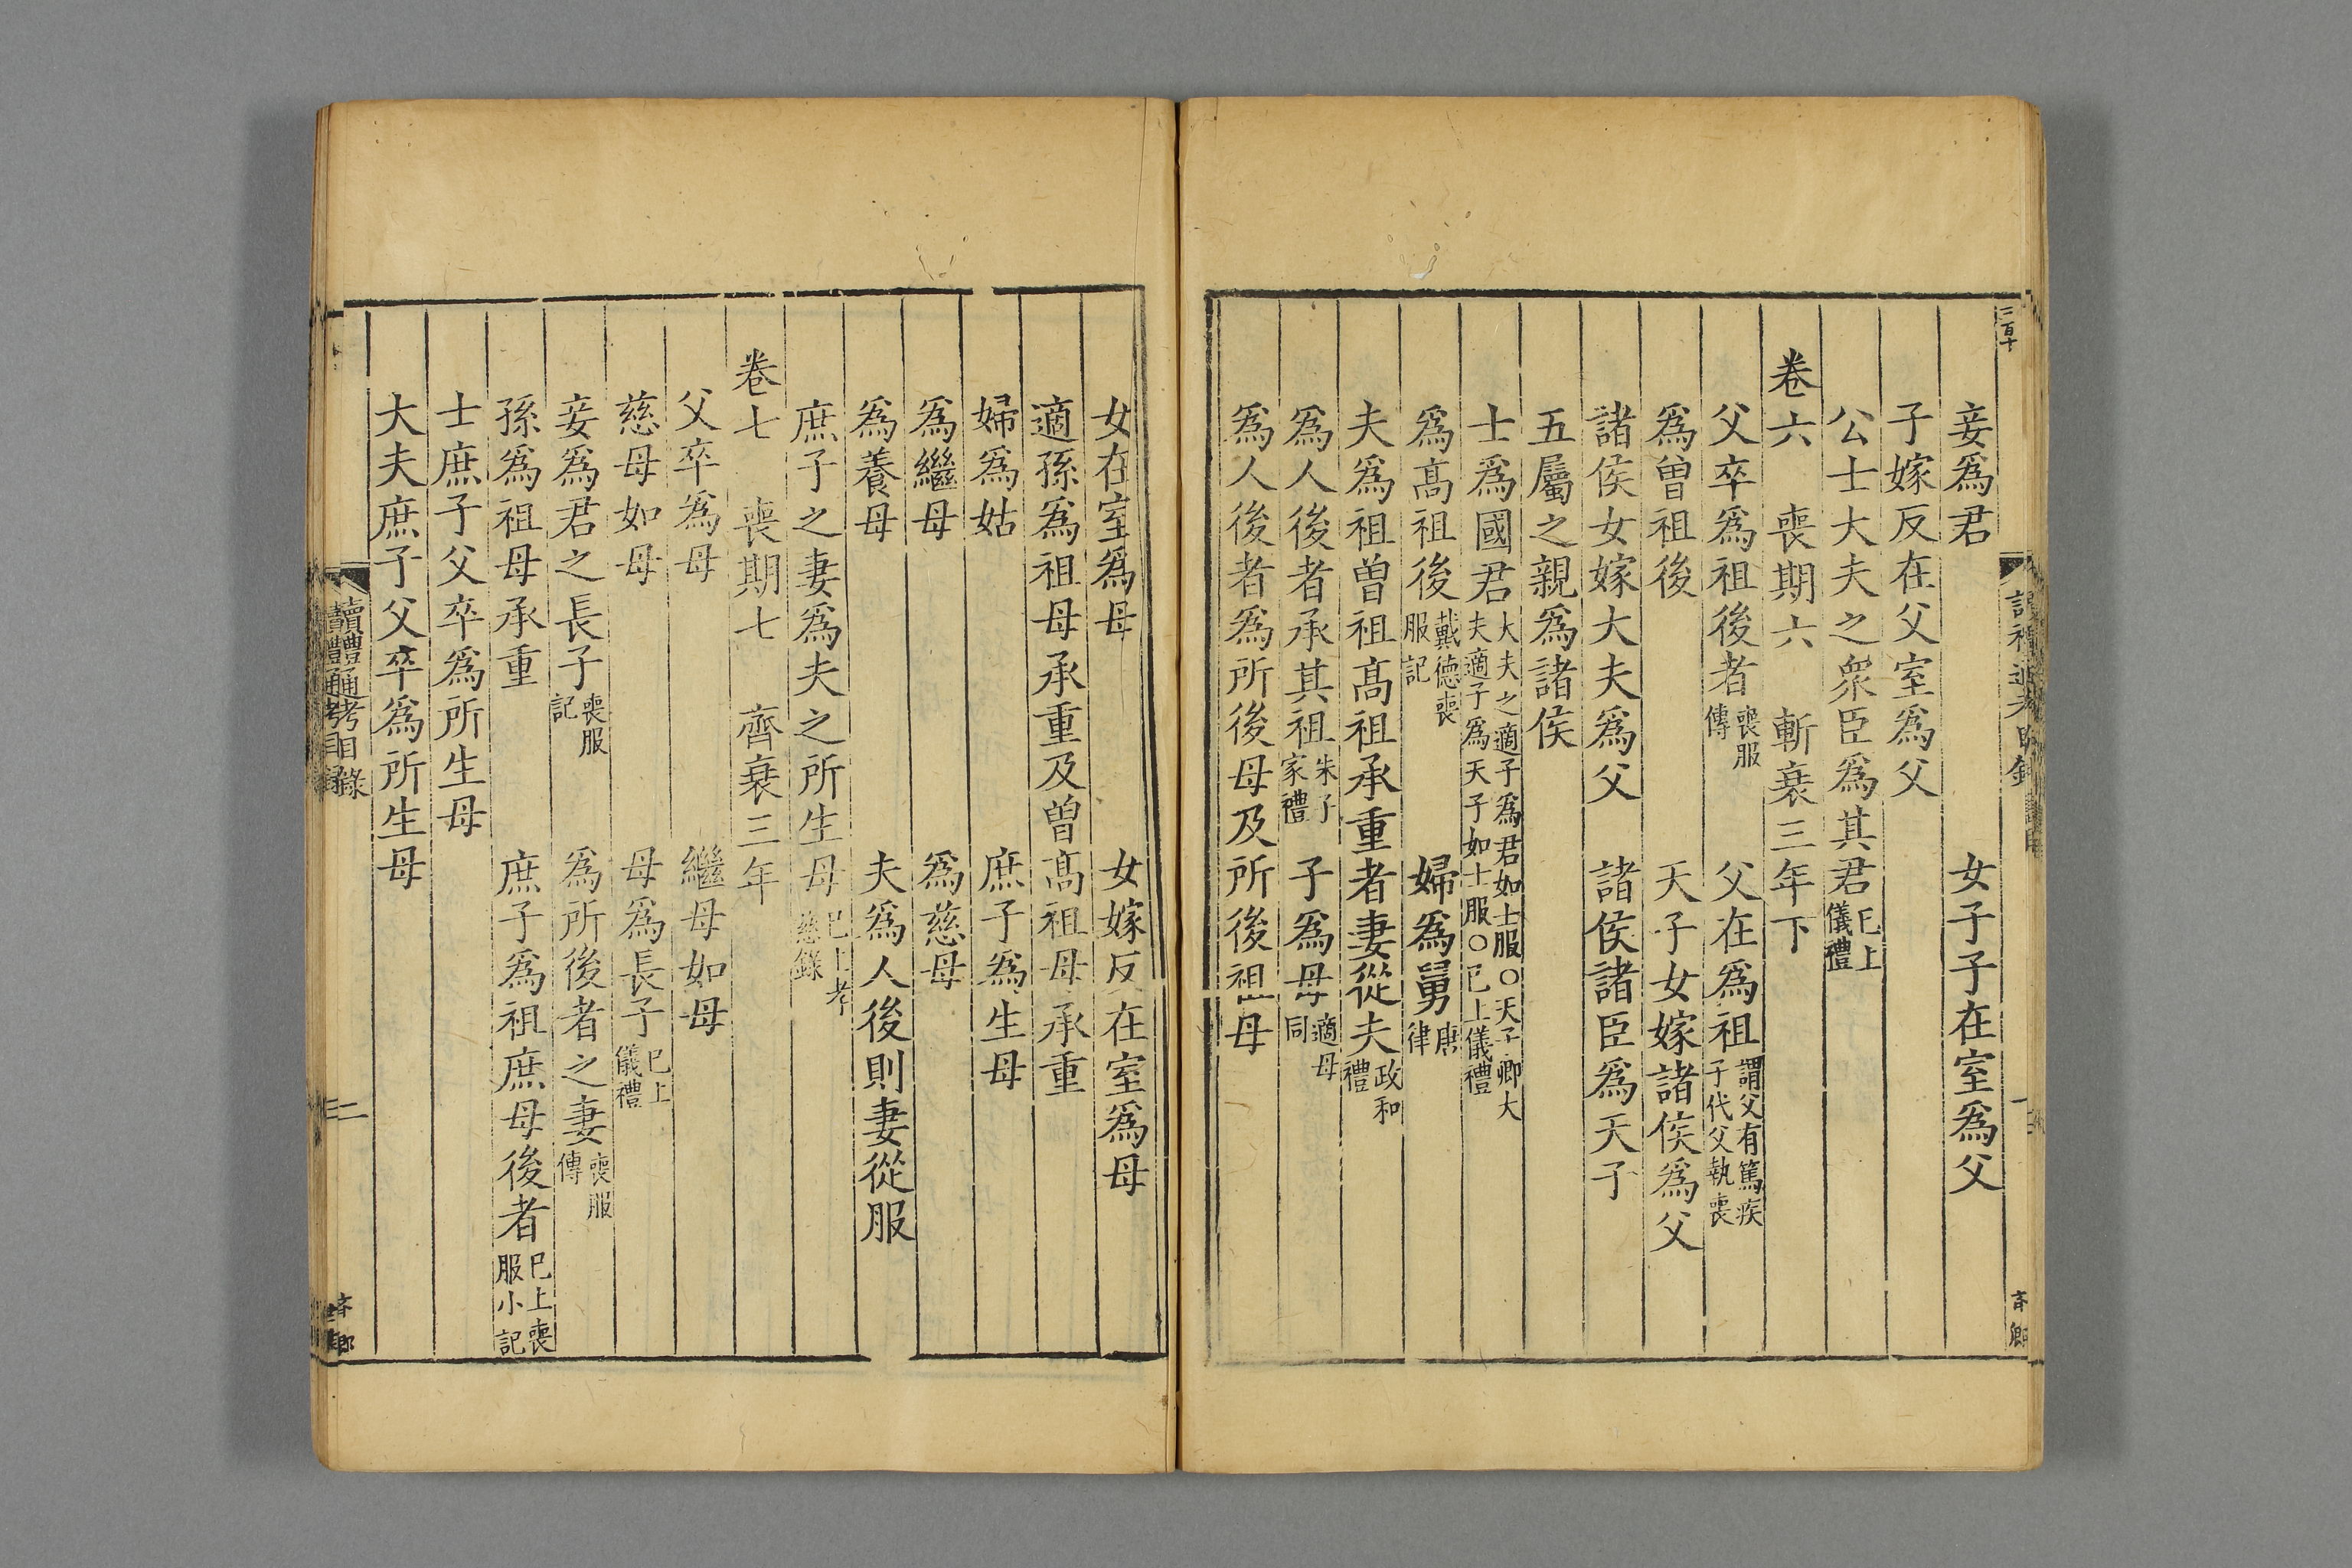 妾爲君　女子子在室爲父
子嫁反在父室爲父
公士大夫之衆臣爲其君已上儀禮
卷六　喪期六　斬衰三年下
父卒爲祖後者喪服傳　父在爲祖謂父有篤疾子代父執喪
爲曾祖後　天子女嫁諸侯爲父
諸侯女嫁大夫爲父　諸侯諸臣爲天子
五屬之親爲諸侯
士爲國君大夫之適子爲君如士服○天子卿大夫適子爲天子如士服○已上儀禮
爲高祖後戴德喪服記　婦爲舅唐律
夫爲祖曾祖高祖承重者妻從夫政和禮
爲人後者承其祖朱子家禮　子爲母適母同
爲人後者爲所後母及所後祖母
女在室爲母　女嫁反在室爲母
適孫爲祖母承重及曾高祖母承重
婦爲姑　庶子爲生母
爲繼母　爲慈母
爲養母　夫爲人後則妻從服
庶子之妻爲夫之所生母已上孝慈錄
卷七　喪期七　齊衰三年
父卒爲母　繼母如母
慈母如母　母爲長子已上儀禮
妾爲君之長子喪服記　爲所後者之妻喪服傳
孫爲祖母承重　庶子爲祖庶母後者已上喪服小記
士庶子父卒爲所生母
大夫庶子父卒爲所生母
讀禮通考目錄
二